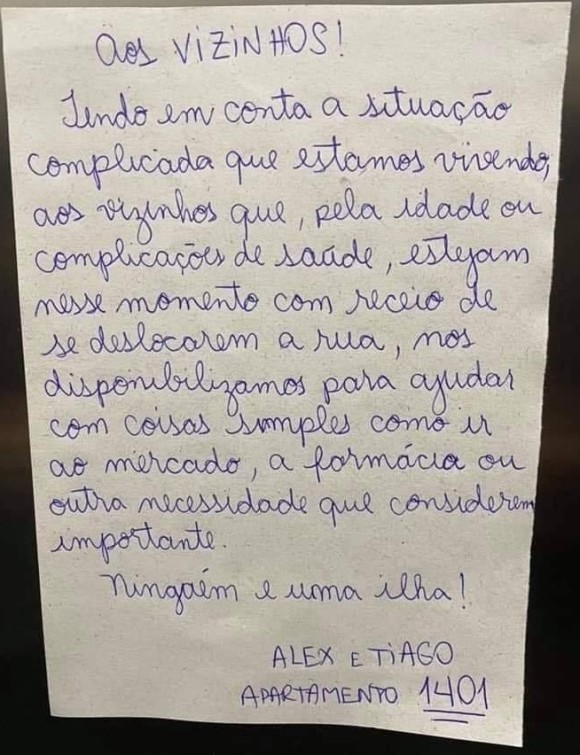 Aos VIZINHOS!
Tendo em conta a situação
complicada que estamos vivendo,
aos vizinhos que, pela idade ou
complicações de saúde, estejam
nesse momento com receio de
se deslocarem a rua, nos
disponibilizamos para ajudar
com coisas simples como ir
ao mercado, a farmácia ou
outra necessidade que considerem
importante.
Ninguém e uma ilha!
ALEX E TIAGO
APARTAMENTO 1401